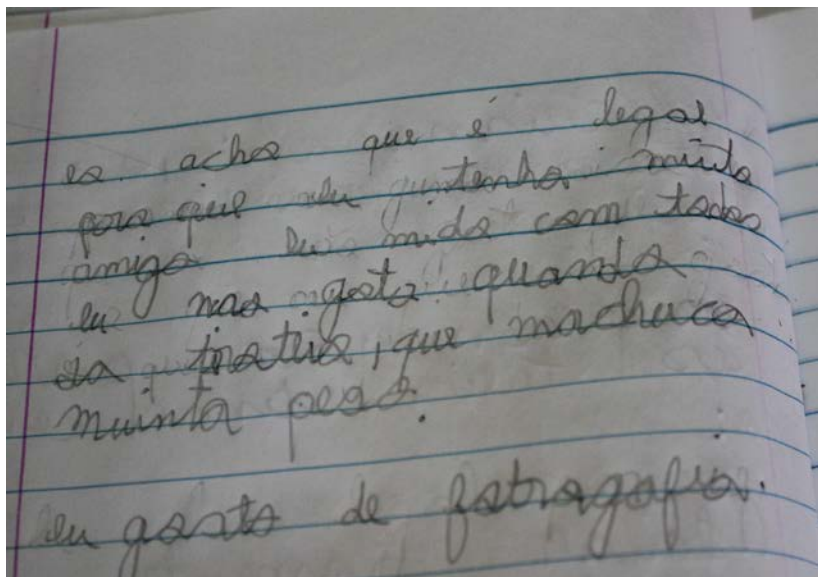 eu acho que é legal
por que eu tenho muito
amigo eu mido com todos
eu nao gosto quando
que machuca
muinta pesa.
eu gosto de fotragofia.